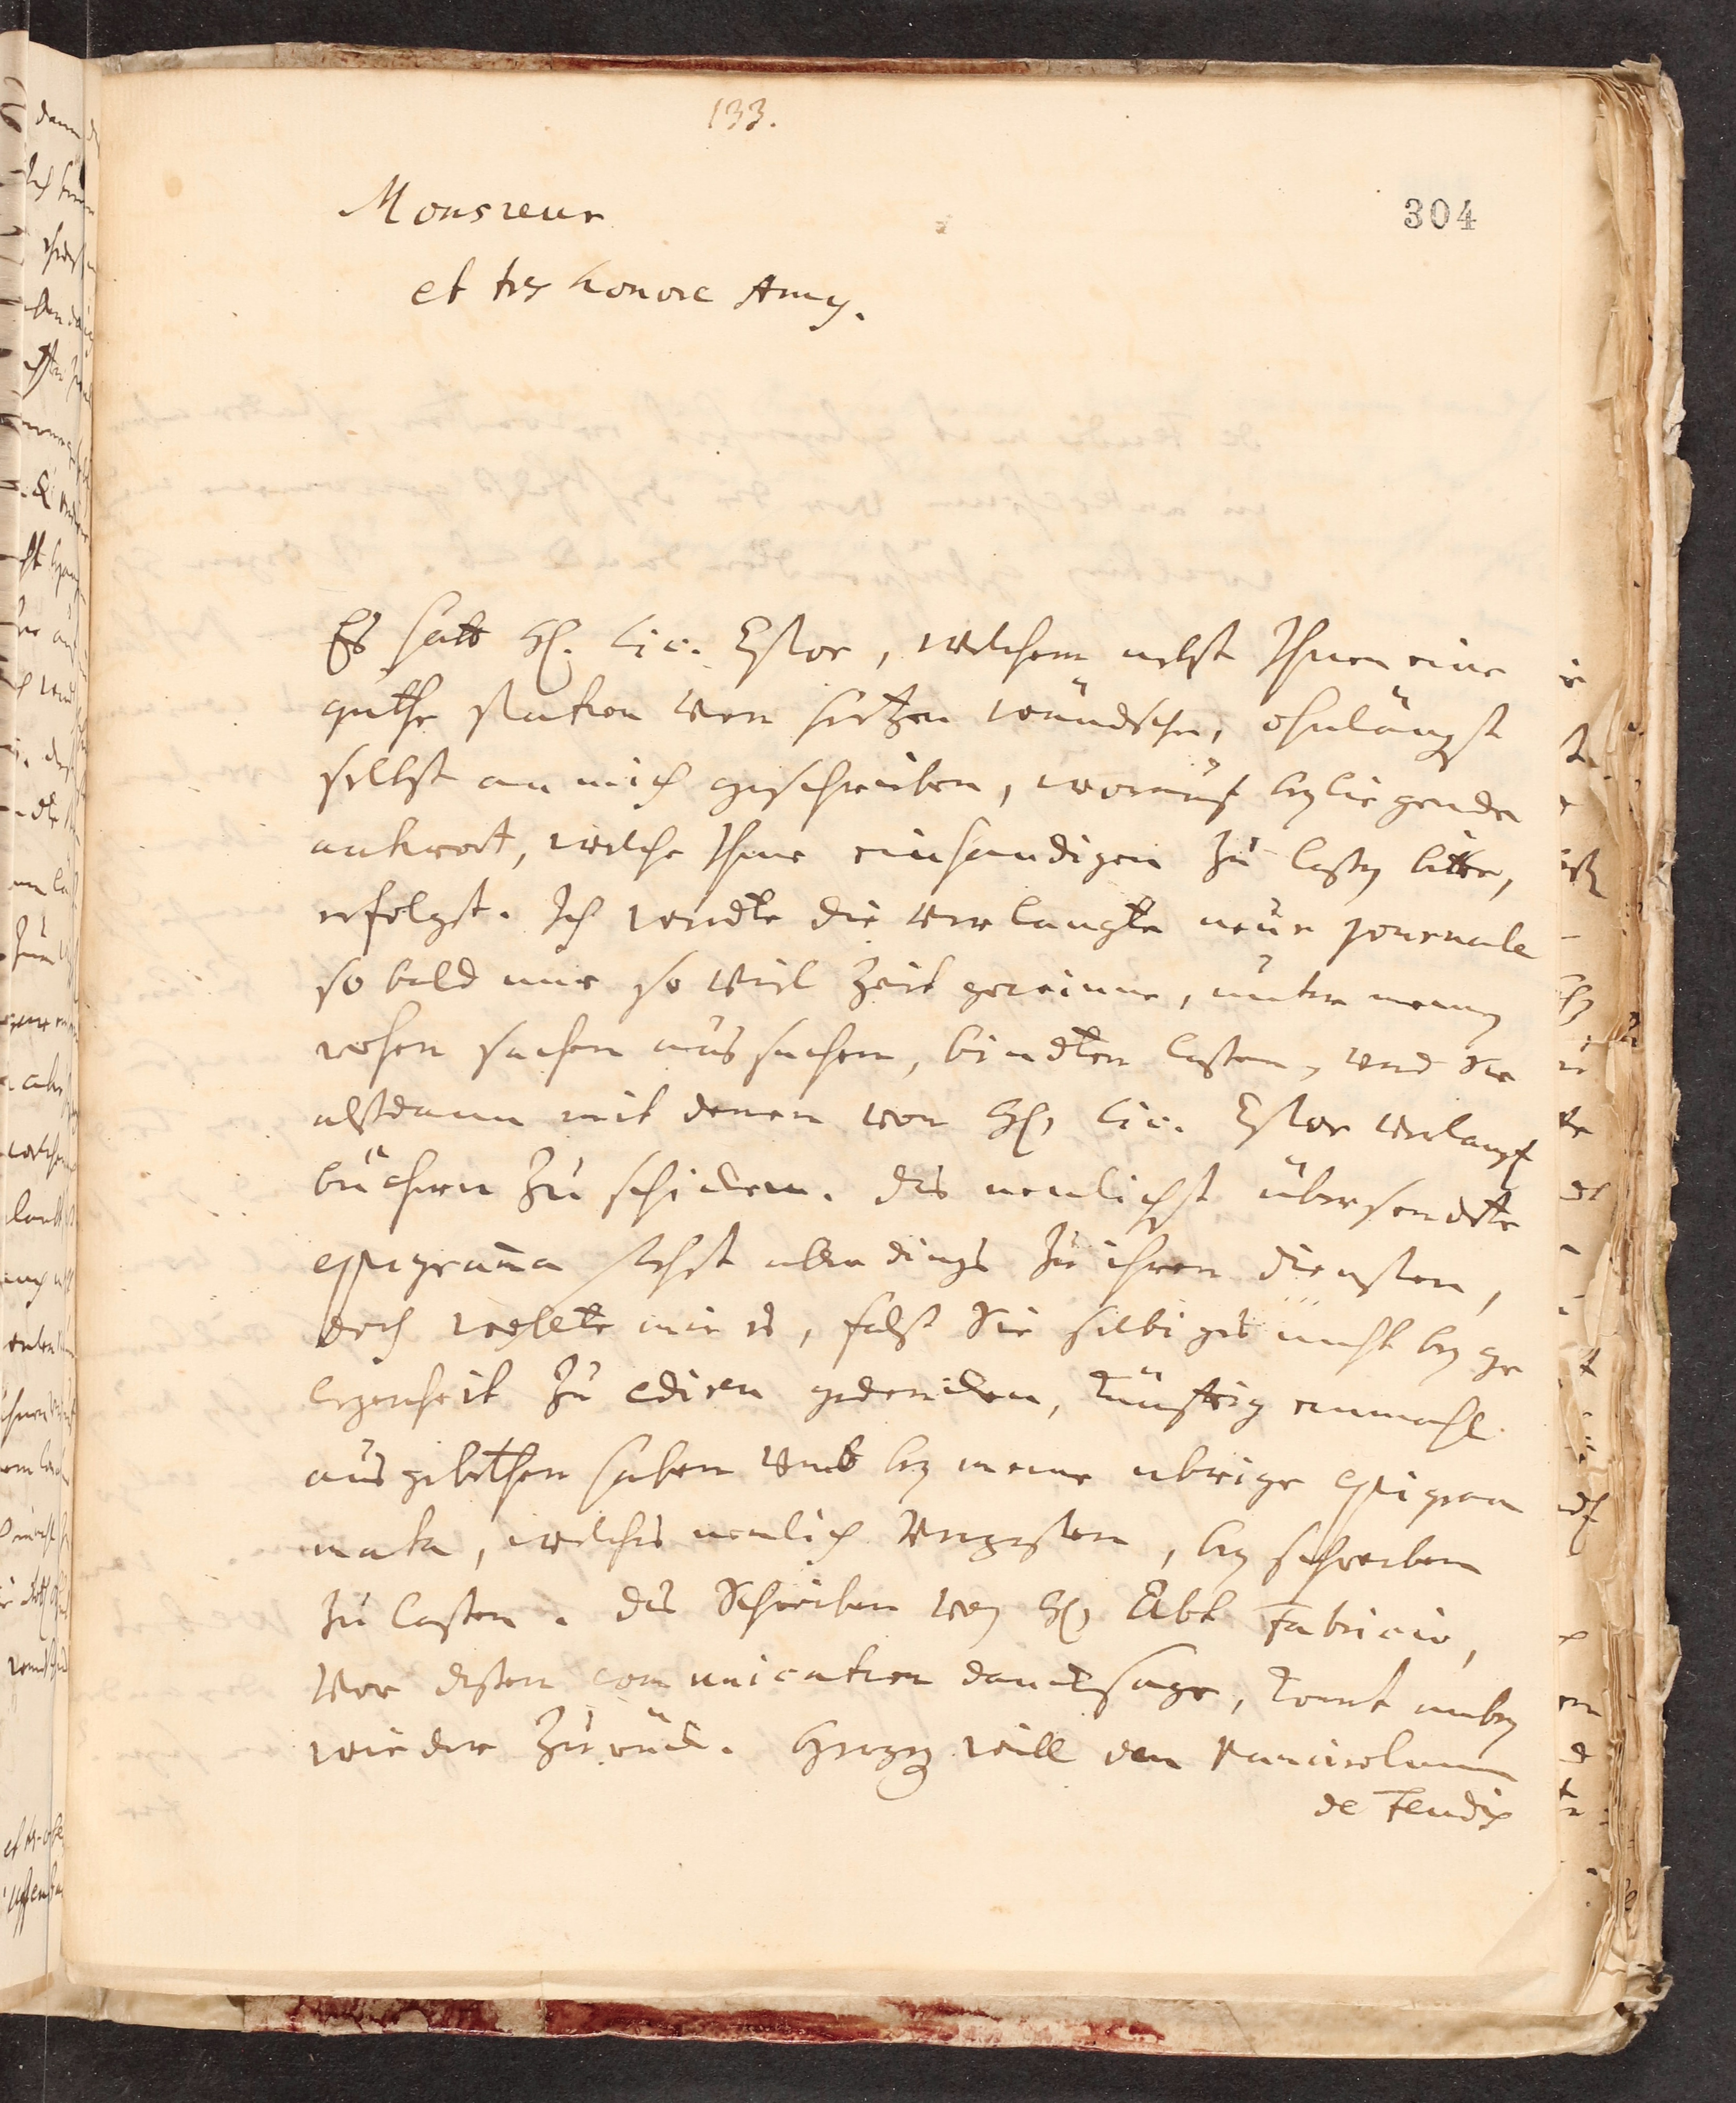 133.
304
Monsieur
et tres honore Amy.
Es hatt H. Lic. Estor, welchem nebst Ihnen eine
guthe station von hertzen wündsche, ohnlängst
selbst an mich geschrieben, worauf bey liegende
antwort, welche Ihme einhandigen zu lassen bitte,
erfolgt. Ich werdte die verlangte neue journale
so bald nur so viel Zeit gewinne, unter meinen
rohen sachen aussuchen, bindten lassen, und sie
alsdann mit denen von H. Lic. Estor verlangt
büchern zu schicken. das neulichst übersendte
epigrama stehet allerdings zu ihren diensten,
doch wollte mir es, falst Sie selbiges nicht bey ge
legenheit zu ediren gedencken, künfftig einmahl
ausgebethen haben und bey meine ubrige epigram
mata, welches neulich vergessen, bey schreiben
zu lassen. das Schreiben von H. Abt Fabricio,
vor dessen communication dancksage, komt anbey
wieder zurück. will den Pancirolum
de Feudis